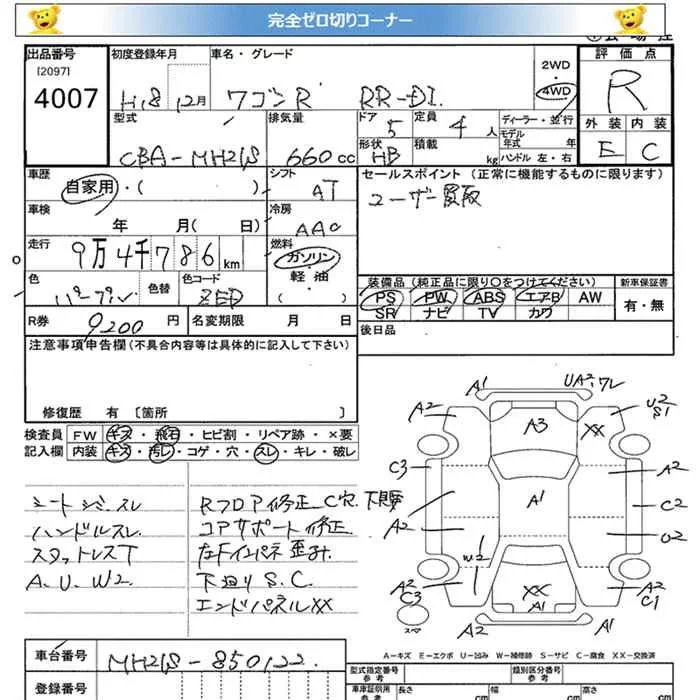 完全ゼロ切りコーナー
出品番号 初度登録年月 車名・グレード 2WD 評価点
[2097] H18 12月 ワゴンR RR-DI 4WD R
4007
型式 排気量 ドア 定員 ディーラー・並行 外装 内装
5 4人 モデル年式 年
CBA-MH21S 660cc 形状 HB 積載 kg ハンドル 左・右 E C
車歴 シフト セールスポイント (正常に機能するものに限ります)
自家用・( ) AT ユーザー買取
車検 冷房
年 月( 日) AAC
走行 9万4千786km 燃料 ガソリン・軽油・( )
色 色替 色コード ZED 装備品 (純正品に限り○をつけてください) 新車保証書
PS PW ABS エアB AW 有・無
SR ナビ TV カワ
R券 9200円 名変期限 月 日 後日品
注意事項申告欄 (不具合内容等は具体的に記入して下さい)
修復歴 有 〔箇所 〕
検査員 FW キズ・飛石・ヒビ割・リペア跡・×要
記入欄 内装 キズ・汚レ・コゲ・穴・スレ・キレ・破レ
ハンドルスレ
スタットレスT
A.U.W2
Rフロア修正
コアサポート修正
下廻りS.C.
エンドパネルXX
A1 UA2
A2 A3 XX U2 S1
C3 A2
A1 C2
A2
W2 U2
A2 C3 XX A1 A2 C1
スペア A2 A1
A-キズ E-エクボ U-凹み W-補修跡 S-サビ C-腐食 XX-交換済
車台番号 MH21S-850122
型式指定番号 類別区分番号
参考 参考
登録番号 車車証明用 参考 長さ cm 幅 cm 高さ cm